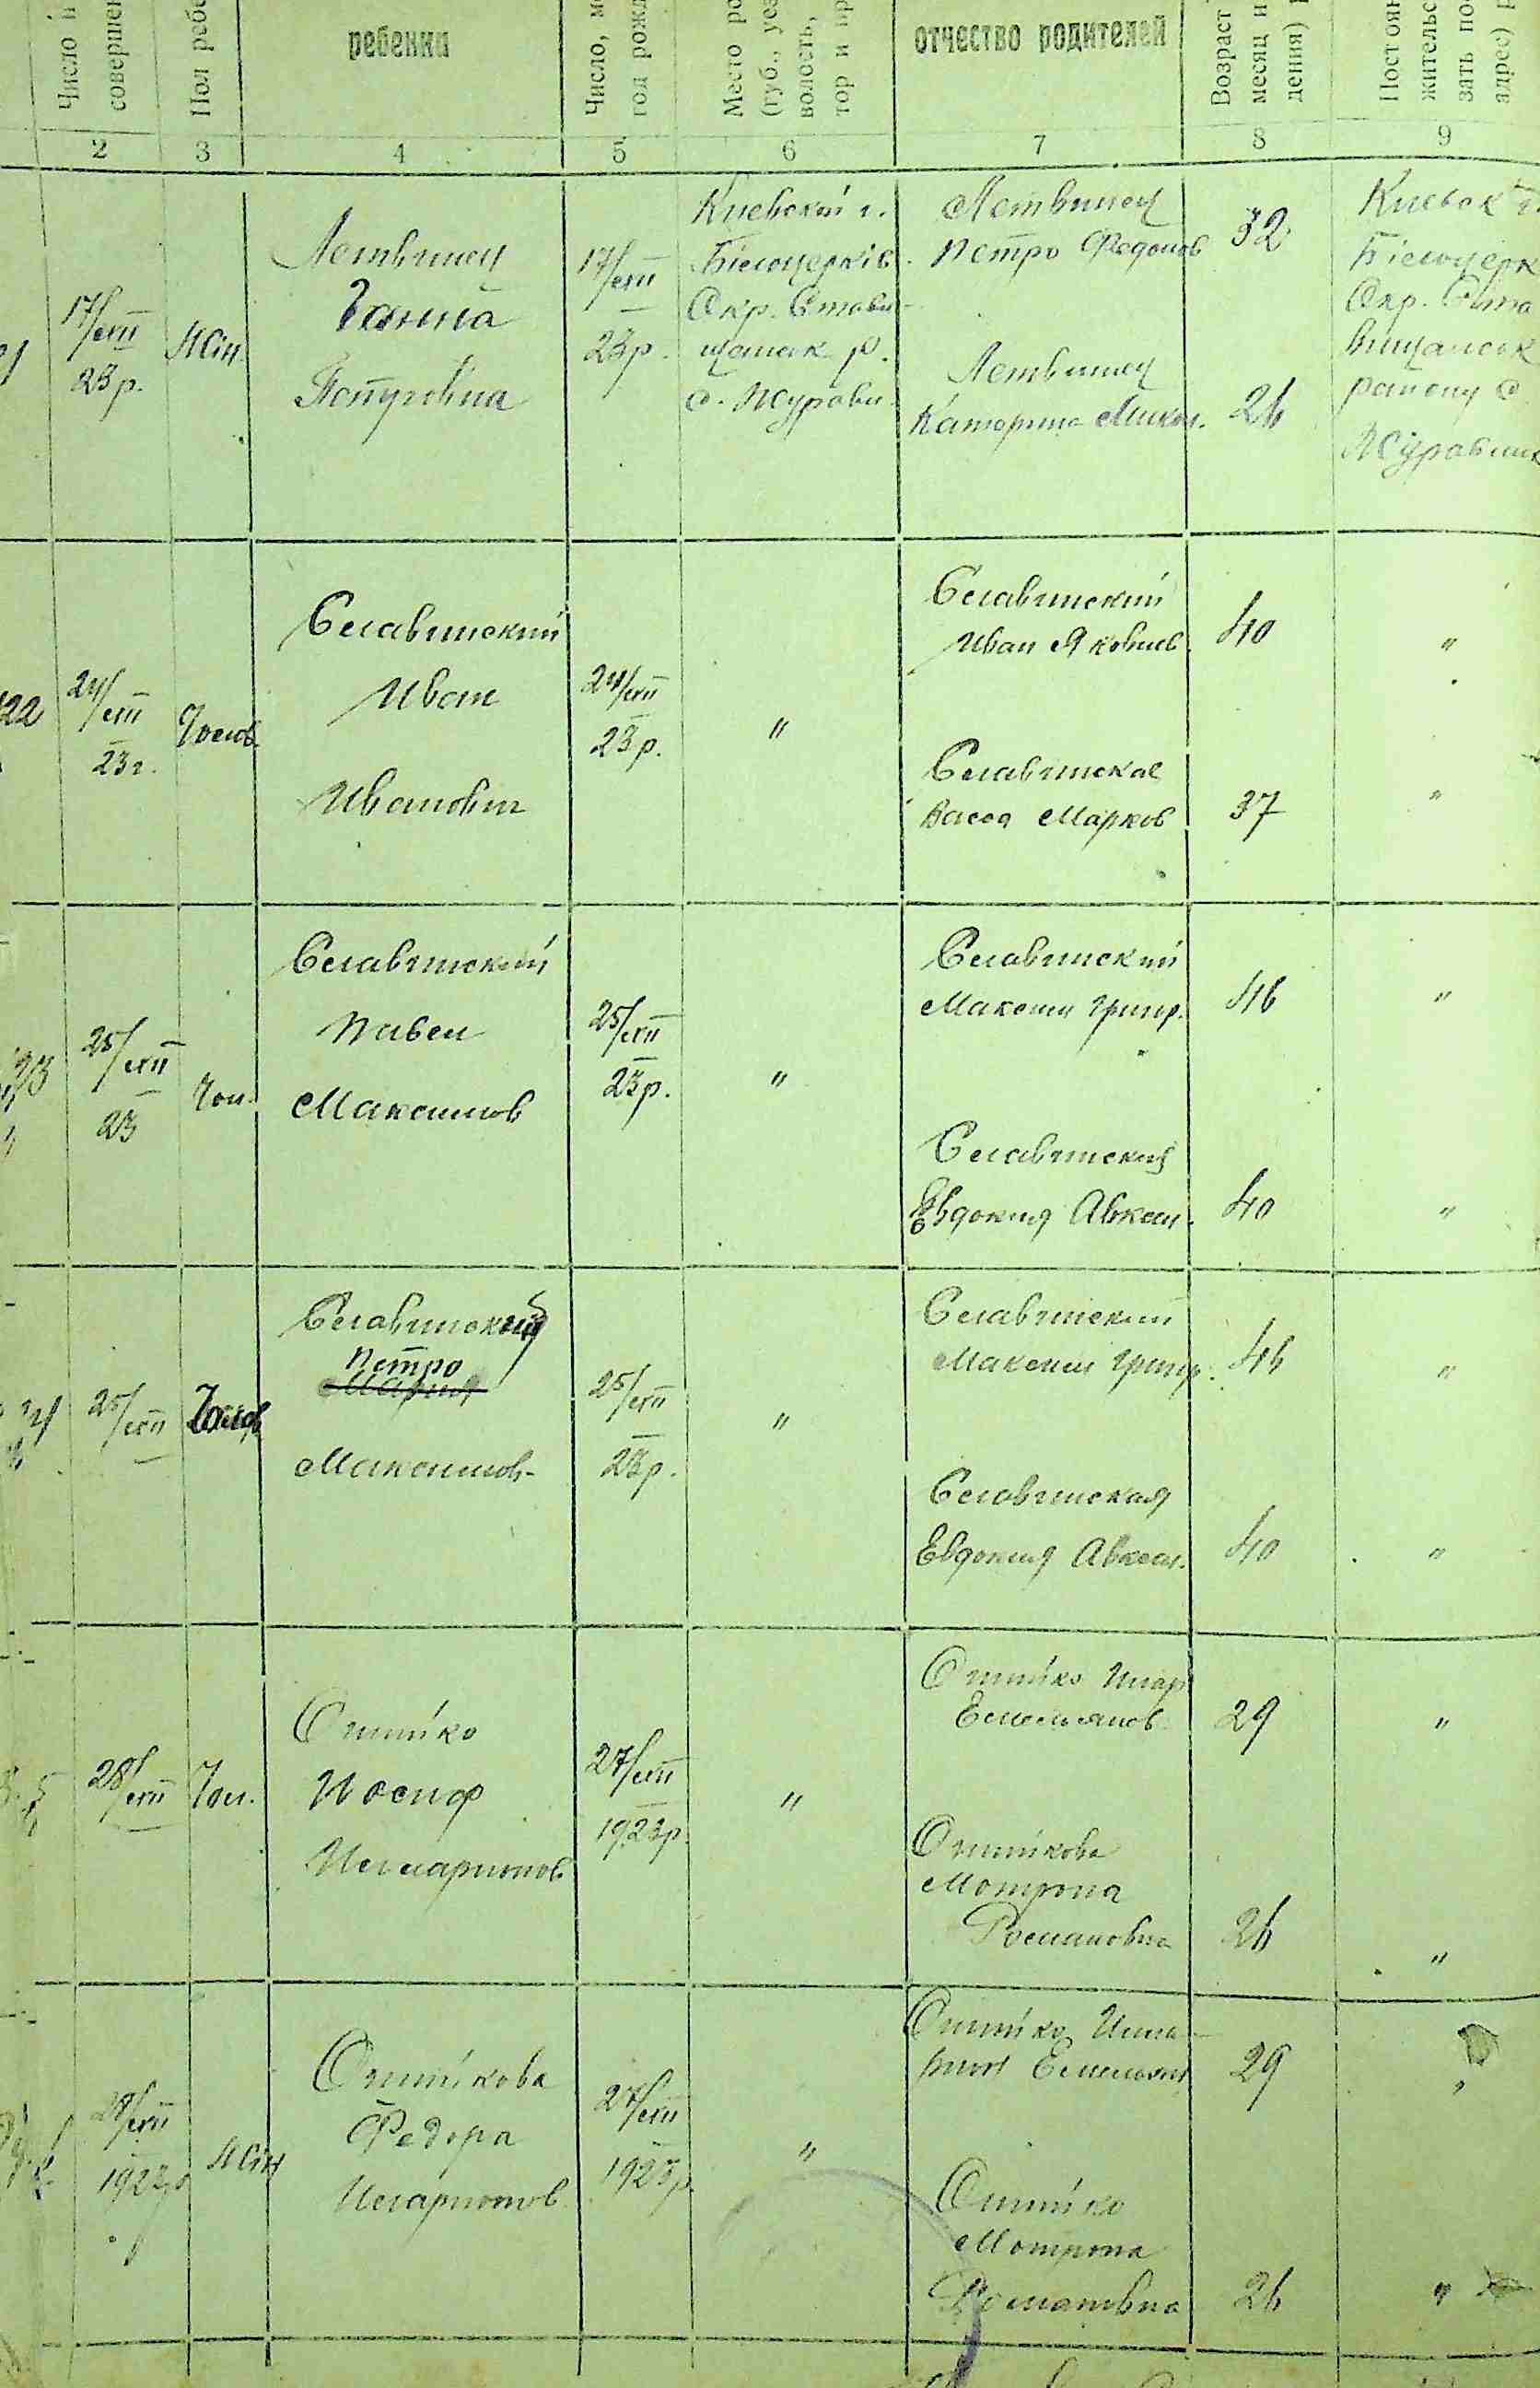 Число і
совершен
Пол ребе
ребенка
Число, м
год рожд
Место ро
(губ., уез
волость,
тор и пр
отчество родителей
Возраст
месяц и
дения)
Постоян
жительс
зать по
адрес)
2 3 4 5 6 7 8 9
17/XII
23р.
Жін.
Летвинец
Ганна
Петровна
17/XII
23р.
Киевской г.
Білоцерків.
Окр. Стави-
щанск. р.
с. Журавл.
Летвинец
Петро Федоров
Летвинец
Катерина Микол.
32
26
Киевск г.
Білоцерк
Окр. Ста
вищанск
району с.
Журавлих
22
24/XII
23г.
Чолов.
Славинский
Иван
Иванович
24/XII
23р.
"
Славинский
Иван Яковлев.
Славинская
Васса Марков
40
37
"
"
23
25/XII
23
Чол.
Славинский
Павел
Максимов
25/XII
23р.
"
Славинский
Максим Григор.
Славинския
Евдокия Авксен.
46
40
"
"
25/XII
Чолов
Славинский
Петро
Мария
Максимов-
25/XII
23р.
"
Славинский
Максим Григор.
Славинская
Евдокия Авксен.
46
40
"
"
28/XII
Чол.
Иосиф
Илларионов
27/XII
1923р.
"
Илар
Емельянов.
Мотрона
Романовна
29
26
"
"
28/XII
1923р
Жін
Федора
Иларионов
27/XII
1923р.
"
Илла-
рион Емельян
Мотрона
Романовна
29
26
"
"